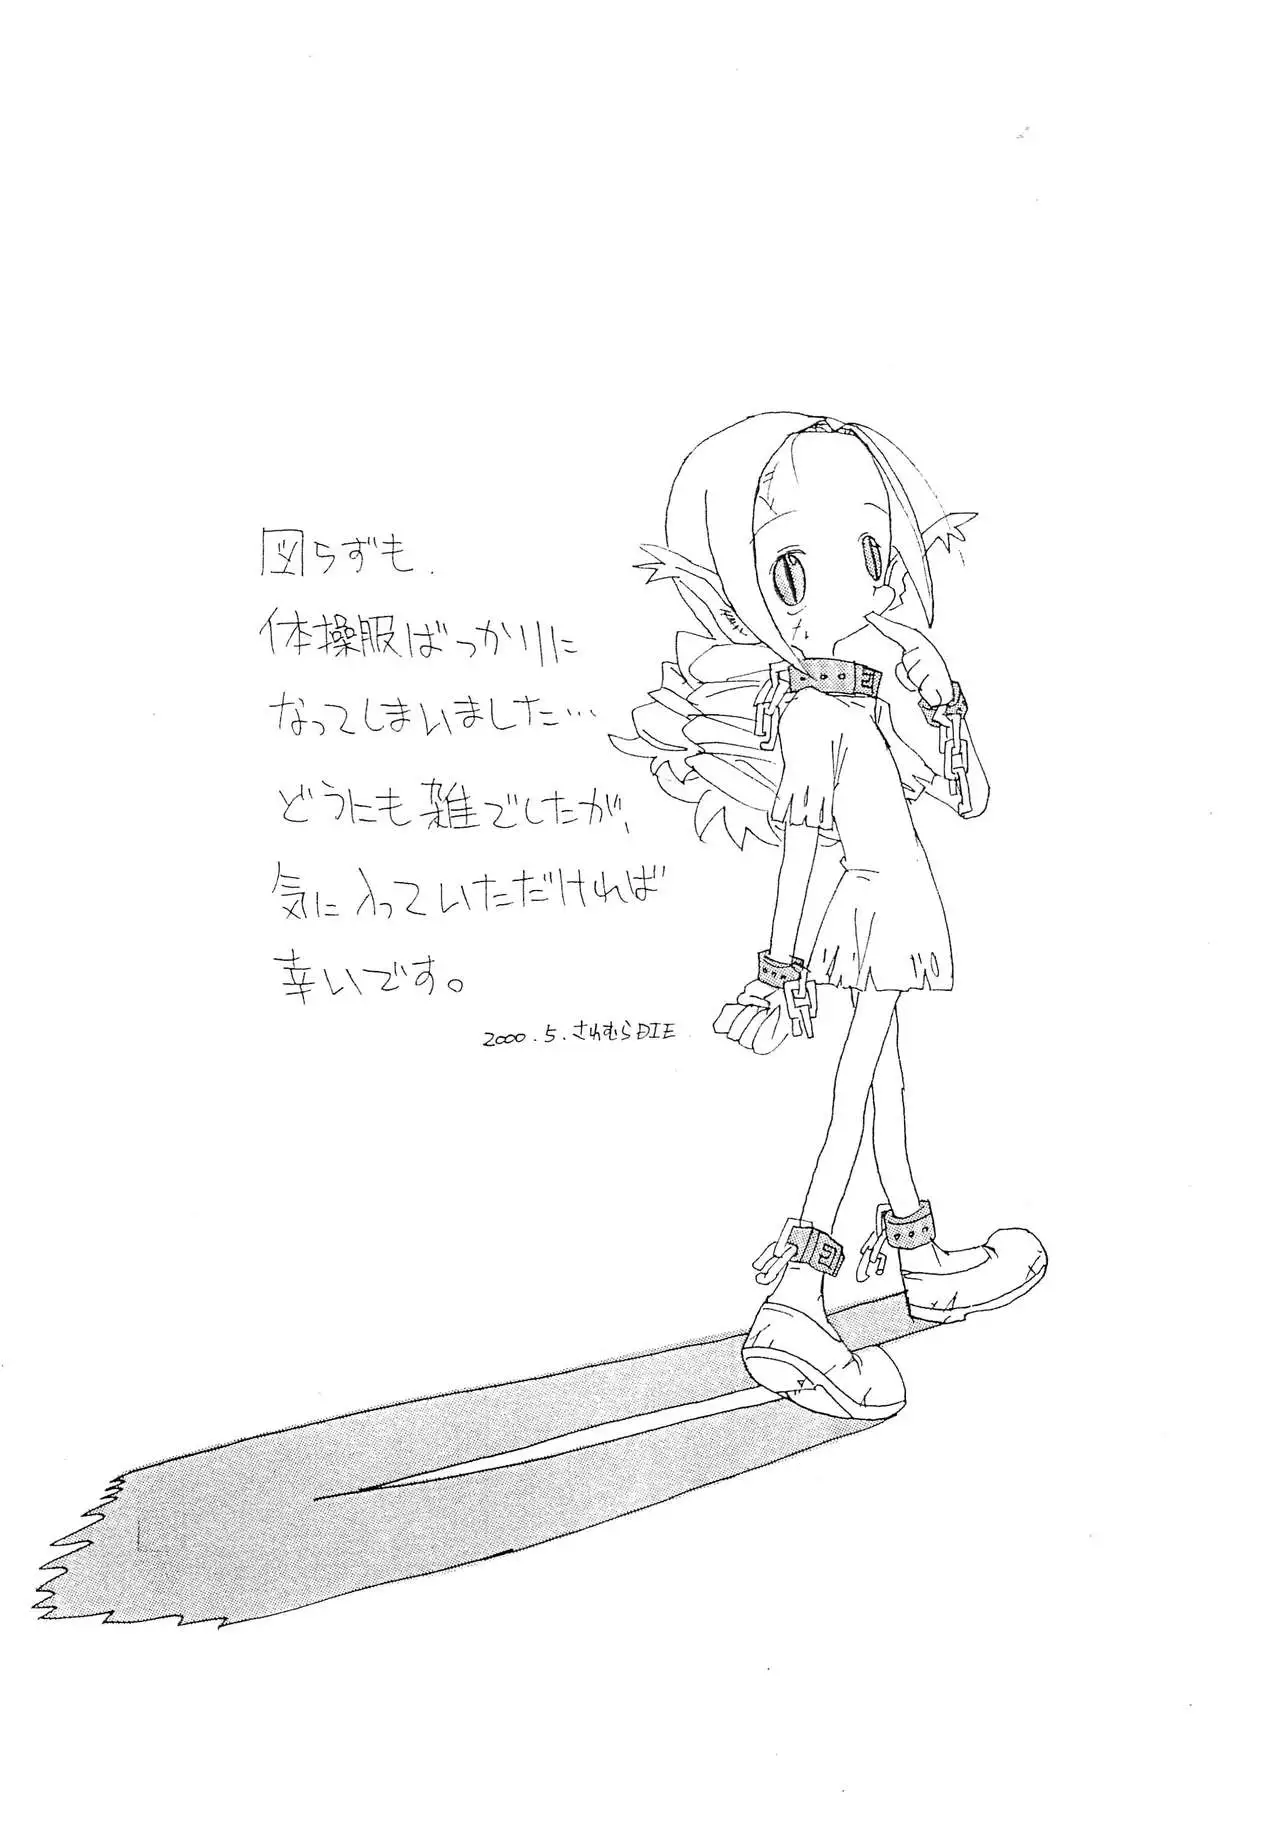 図らずも.
体操服ばっかりに
なってしまいました…
どうにも雑でしたが、
気に入っていただければ
幸いです。
2000.5.さわむらDIE